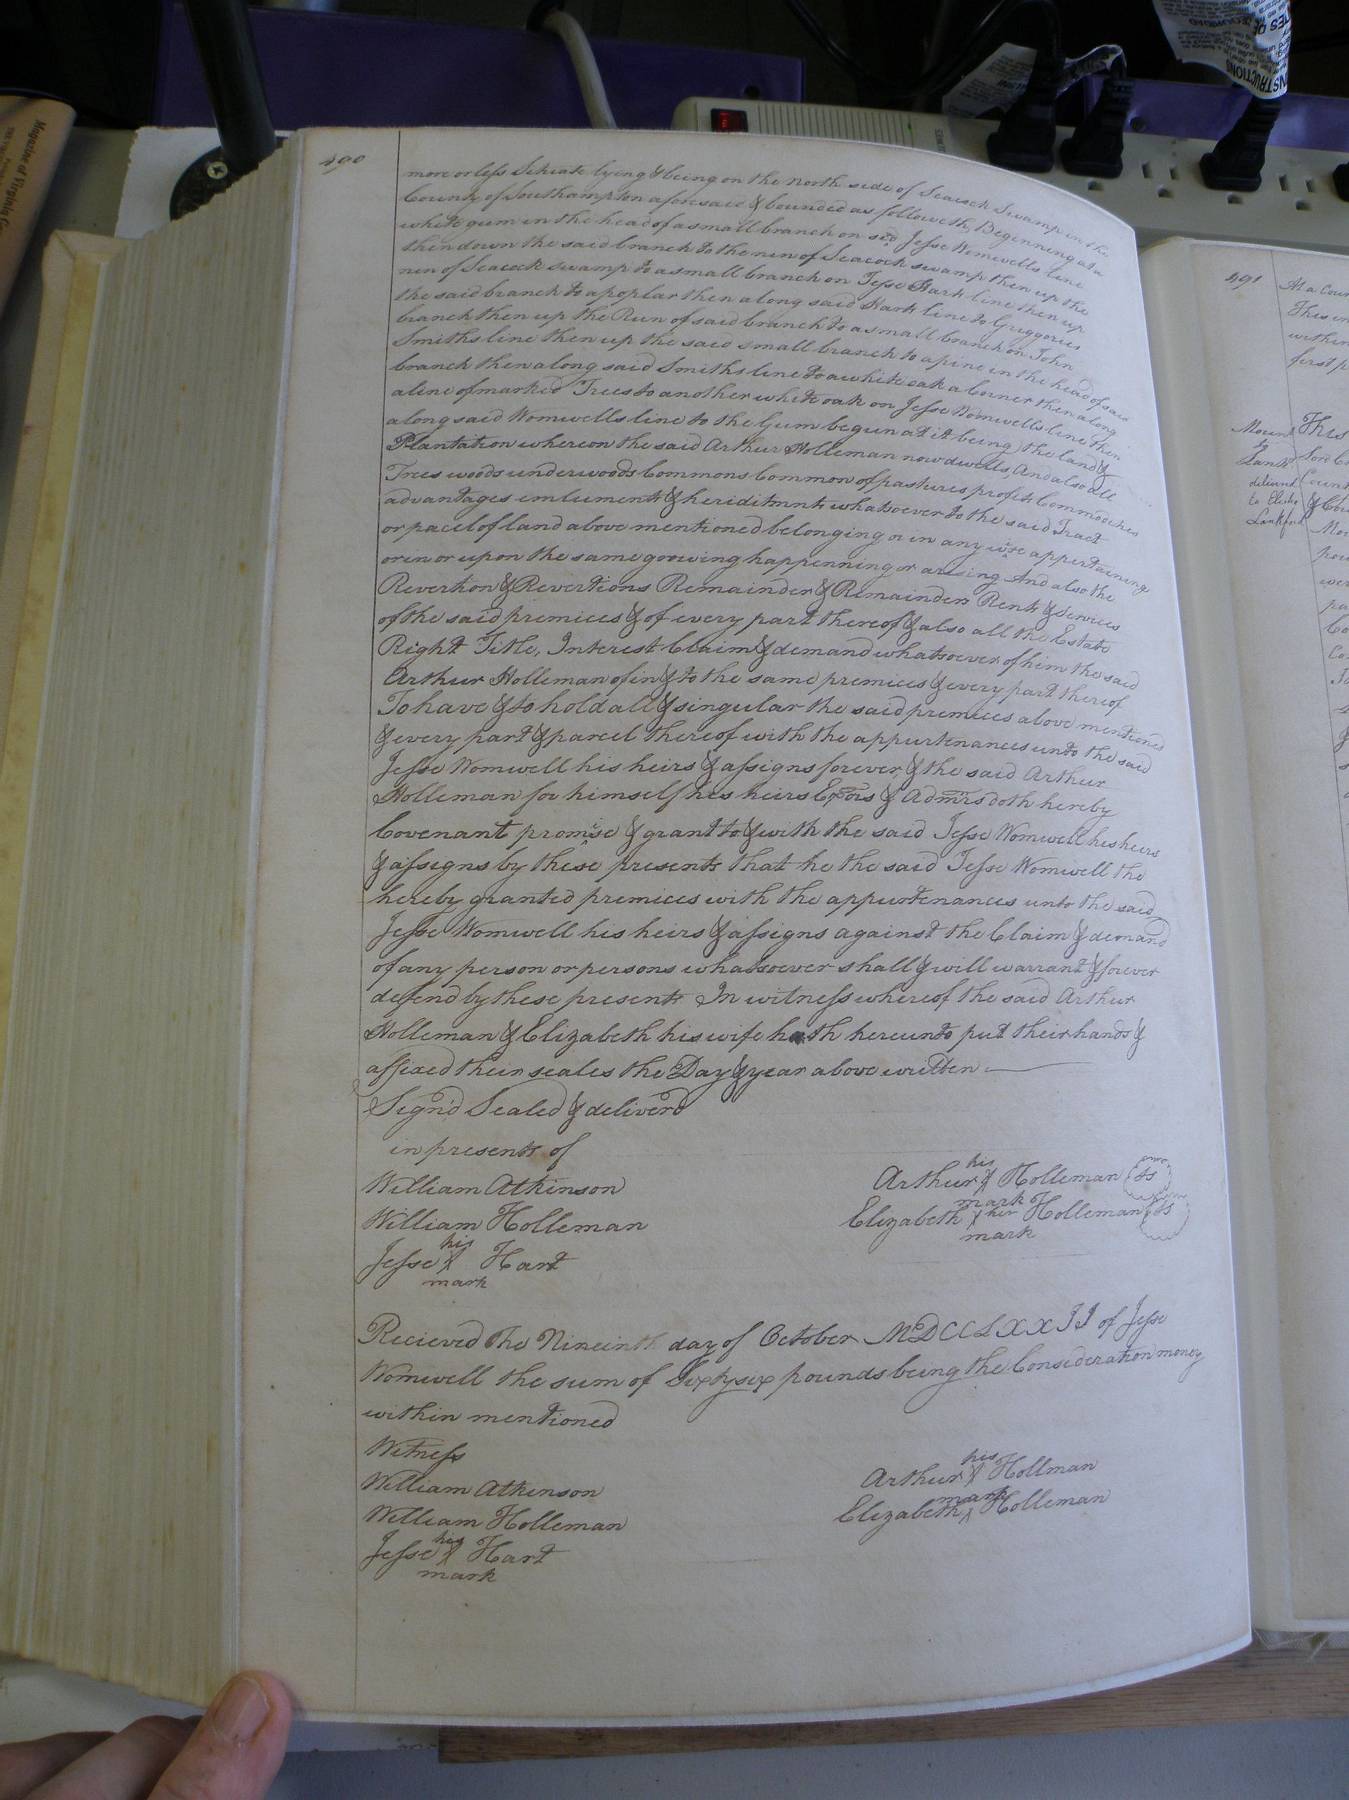 490
more or less Scituate lying & being on the north side of Seacock Swamp in the
County of Southampton aforesaid & bounded as followeth, Beginning at a
white gum in the head of a small branch on sd. Jesse Womwells line
then down the said branch to the run of Seacock swamp then up the
run of Seacock swamp to a small branch on Jesse Hart line then up
the said branch to a poplar then along said Hart line to Griggories
branch then up the Run of said branch to a small branch on John
Smiths line then up the said small branch to a pine in the head of said
branch then along said Smiths line to a white oak a Corner then along
a line of marked Trees to another white oak on Jesse Womwells line then
along said Womwells line to the Gum begun at it being the land &
Plantation whereon the said Arthur Holleman now dwells, And also all
Trees woods underwoods Commons Common of pastures profits Commodities
advantages emluments & heriditmnts whatsoever to the said Tract
or pacel of land above mentioned belonging or in any wise appertaining
or in or upon the same growing happenning or arising And also the
Revertion & Revertions Remainder & Remainders Rents & services
of the said premices & of every part thereof & also all the Estate
Right Title, Interest Claim & demand whatsoever of him the said
Arthur Holleman of in & to the same premices & every part thereof
To have & to hold all & singular the said premices above mentioned
& every part & parcel thereof with the appurtenances unto the said
Jesse Womwell his heirs & assigns forever & the said Arthur
Holleman for himself his heirs Exors & Admrs doth hereby
Covenant promise & grant to & with the said Jesse Womwell his heirs
& assigns by these presents that he the said Jesse Womwell the
hereby granted premices with the appurtenances unto the said
Jesse Womwell his heirs & assigns against the Claim & demand
of any person or persons whatsoever shall & will warrant & forever
defend by these presents In witness whereof the said Arthur
Holleman & Elizabeth his wife hath hereunto put their hands &
affixed their seales the Day & year above written
Signd Sealed & deliverd
in presents of
William Atkinson
Arthur his X mark Holleman Ls
William Holleman
Elizabeth X her mark Holleman Ls
Jesse his X mark Hart
Recieved the Nineinth day of October MDCCLXXII of Jesse
Womwell the sum of Sixtysix pounds being the Consideration money
within mentioned
Witness
William Atkinson
Arthur his X mark Hollman
William Holleman
Elizabeth X Holleman
Jesse his X mark Hart
491
At a Cour
This in
within
first p
Mount
to
Lank
deliverd
to Elisha
Lankford
This
Magazine of Virginia
INSTRUCTIONS